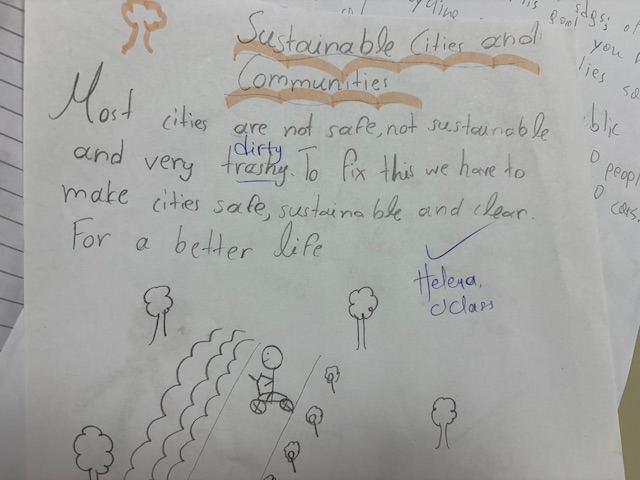 Sustainable Cities and
Communities
Most cities are not safe, not sustainable
dirty
and very trashy. To fix this we have to
make cities safe, sustainable and clear.
For a better life
Helena,
you
blic
0 peopl
0 cars.